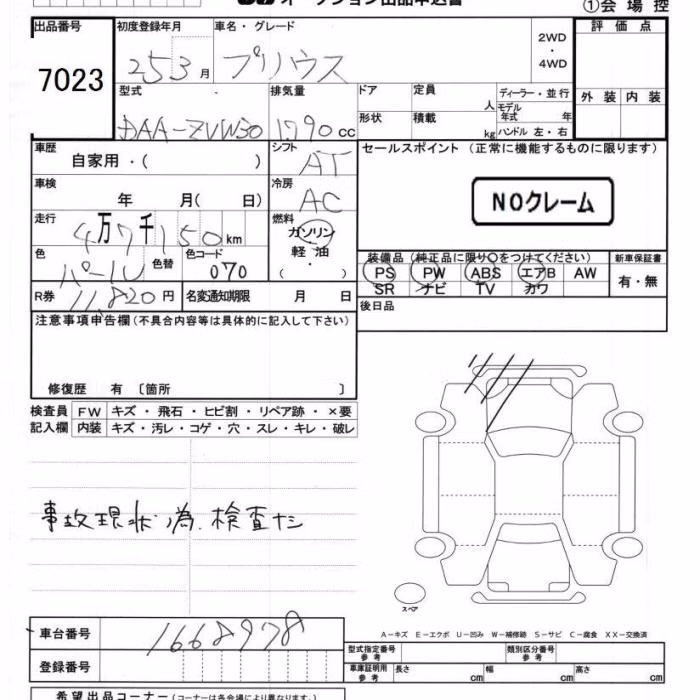 オークション出品申込書
①会場控
出品番号 初度登録年月 車名・グレード 2WD・4WD 評価点
7023 253月 プリウス
型式 排気量 ドア 定員 人 ディーラー・並行 外装 内装
DAA-ZVW30 1790cc 形状 積載 kg モデル年式 年 ハンドル 左・右
車歴 自家用・( ) シフト AT セールスポイント (正常に機能するものに限ります)
車検 年 月( 日) 冷房 AC NOクレーム
走行 4万7千150km 燃料 ガソリン 軽油 ( ・ )
色 パール 色替 色コード 070 装備品 (純正品に限り○をつけてください) 新車保証書
PS PW ABS エアB AW 有・無
SR ナビ TV カワ
R券 11,820円 名変通知期限 月 日 後日品
注意事項申告欄 (不具合内容等は具体的に記入して下さい)
修復歴 有 〔箇所 〕
検査員 FW キズ・飛石・ヒビ割・リペア跡・×要
記入欄 内装 キズ・汚レ・コゲ・穴・スレ・キレ・破レ
事故現状為.検査ナシ
スペア
車台番号 1668978
A-キズ E-エクボ U-凹み W-補修跡 S-サビ C-腐食 XX-交換済
登録番号 型式指定番号 参考 類別区分番号 参考
車庫証明用 参考 長さ cm 幅 cm 高さ cm
希望出品コーナー (コーナー名は各会場により異なります。)